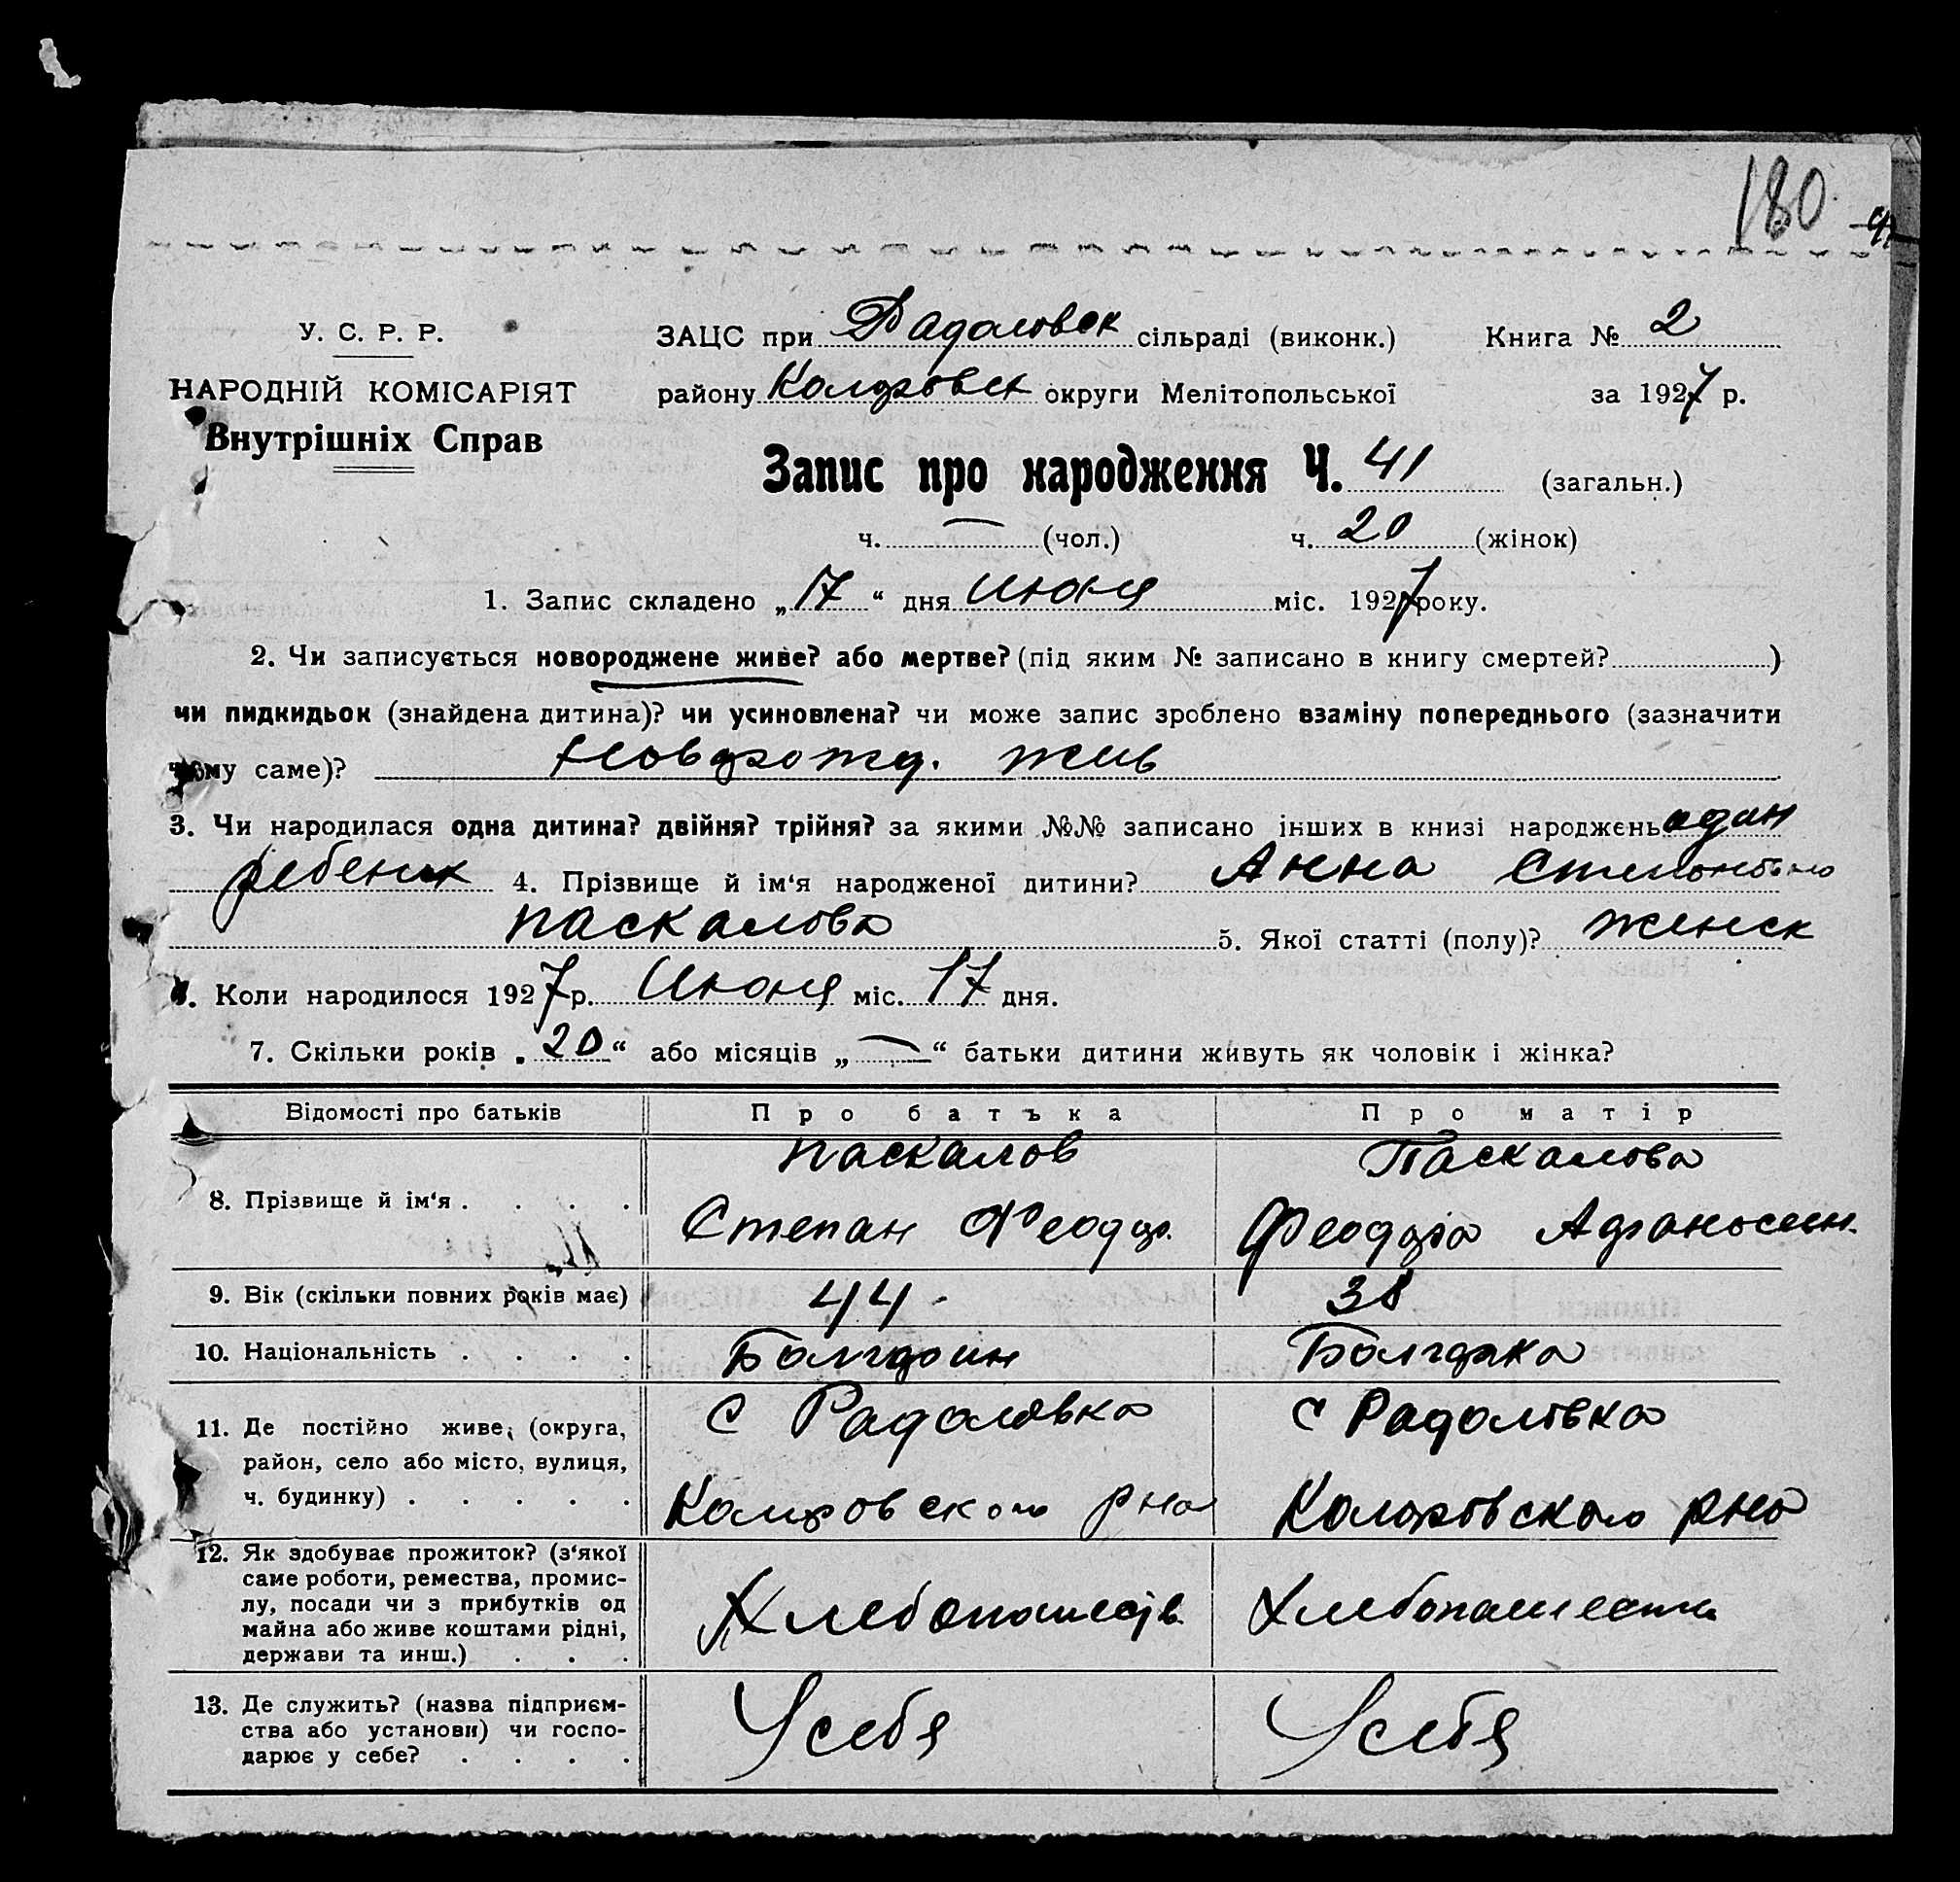 180
У. С. Р. Р.
ЗАЦС при Радоловск сільраді (виконк.) Книга № 2
НАРОДНІЙ КОМІСАРІЯТ
району Колоровск округи Мелітопольської за 1927 р.
Внутрішніх Справ
Запис про народження Ч. 41 (загальн.)
ч. — (чол.) ч. 20 (жінок)
1. Запис складено „17“ дня Июня міс. 1927 року.
2. Чи записується новороджене живе? або мертве? (під яким № записано в книгу смертей? )
чи пидкидьок (знайдена дитина)? чи усиновлена? чи може запис зроблено взаміну попереднього (зазначити
чому саме)? Новорожд. жив
3. Чи народилася одна дитина? двійня? трійня? за якими №№ записано інших в книзі народжень один
ребенок 4. Прізвище й ім‘я народженої дитини? Анна Степановна
Паскалова 5. Якої статті (полу)? женск
6. Коли народилося 1927 р. Июня міс. 17 дня.
7. Скільки років „20“ або місяців „—“ батьки дитини живуть як чоловік і жінка?
Відомості про батьків Про батька Про матір
Паскалов Паскалова
8. Прізвище й ім‘я . . . .
Степан Феодор. Феодора Афанасьен.
9. Вік (скільки повних років має) 44 - 38
10. Національність . . . . Болгарин Болгарка
11. Де постійно живе, (округа, район, село або місто, вулиця, ч. будинку) . . . . .
с Радоловка с Радоловка
Колоровского рна Колоровского рна
12. Як здобуває прожиток? (з‘якої
саме роботи, ремества, промис-
лу, посади чи з прибутків од
майна або живе коштами рідні,
держави та инш.) . . .
Хлебопашеств Хлебопашеств
13. Де служить? (назва підприєм-
ства або установи) чи госпо-
дарює у себе? . . . .
У себя У себя